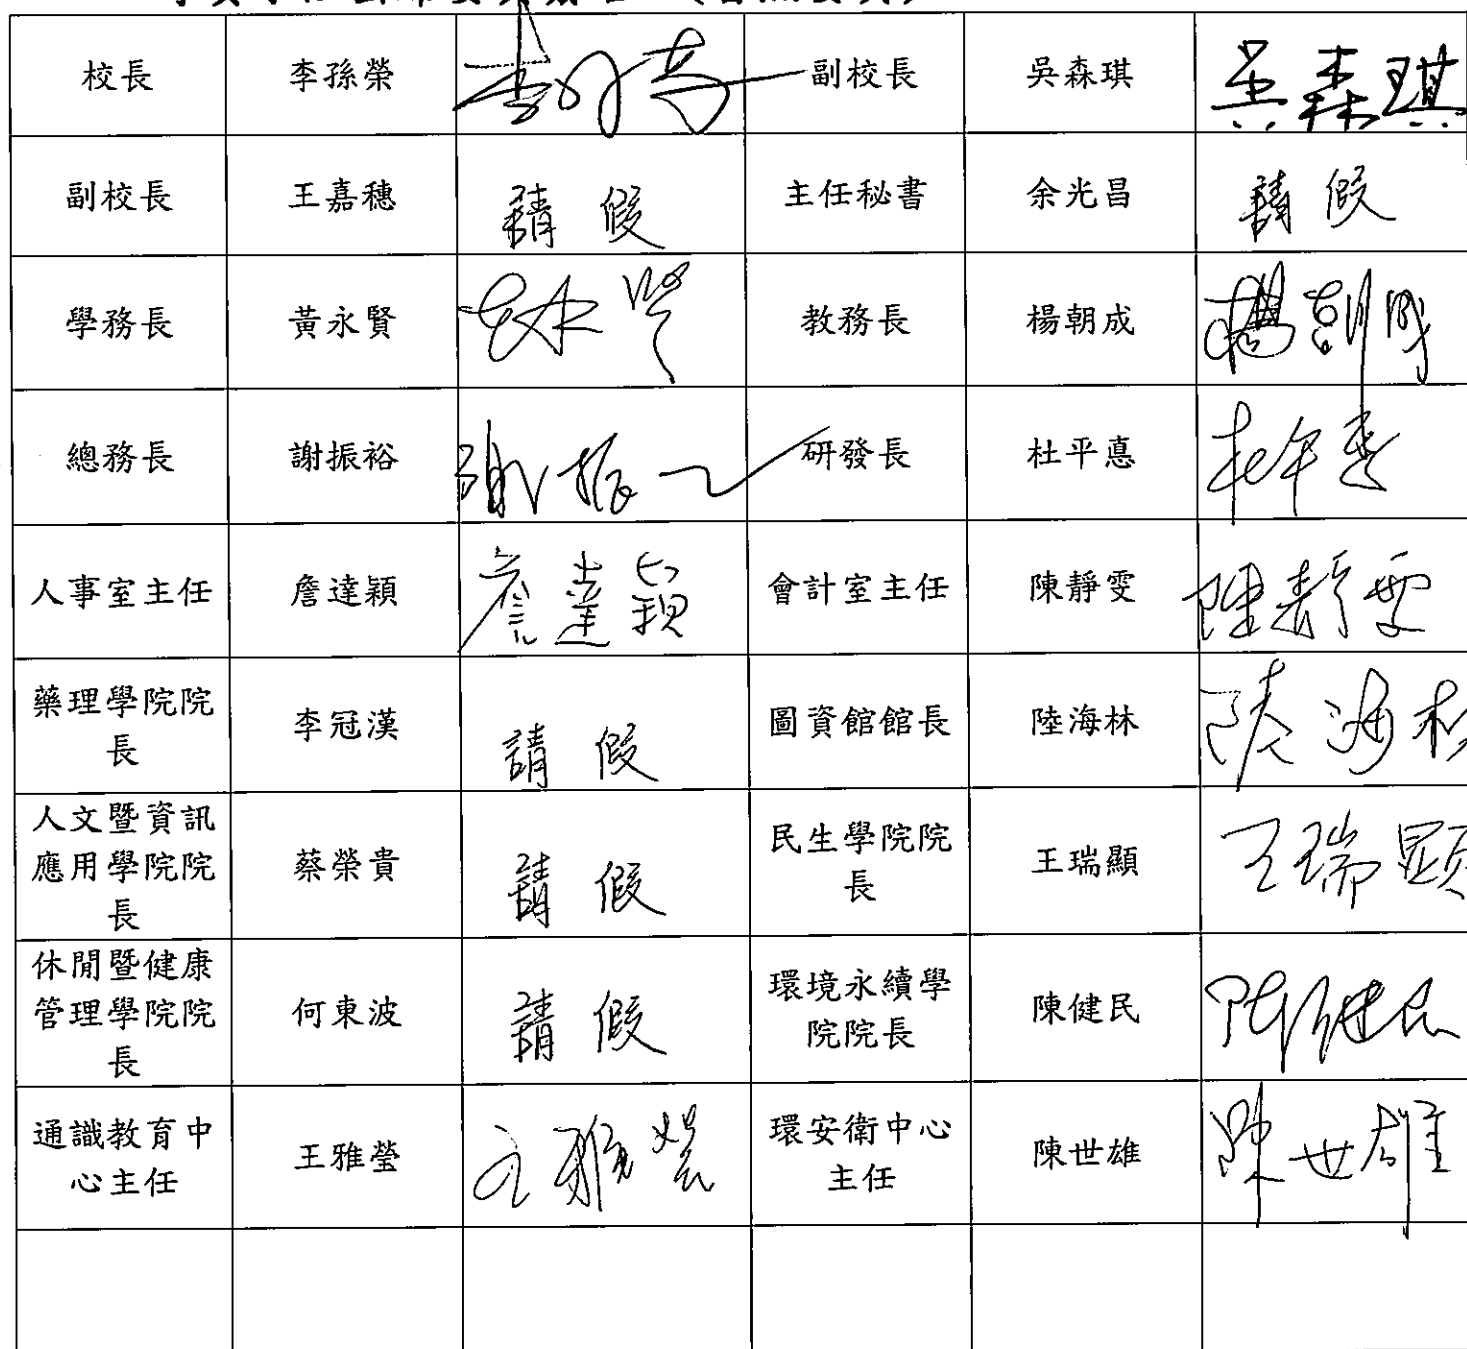 校長 李孫榮 李孫榮 副校長 吳森琪 吳森琪
副校長 王嘉穗 請假 主任秘書 余光昌 請假
學務長 黃永賢 永賢 教務長 楊朝成 楊朝成
總務長 謝振裕 謝振 研發長 杜平悳 杜平悳
人事室主任 詹達穎 詹達穎 會計室主任 陳靜雯 陳靜雯
藥理學院院
長
李冠漢 請假 圖資館館長 陸海林 陸海林
人文暨資訊
應用學院院
長
蔡榮貴 請假
民生學院院
長
王瑞顯 王瑞顯
休閒暨健康
管理學院院
長
何東波 請假
環境永續學
院院長
陳健民 陳健民
通識教育中
心主任
王雅瑩 王雅瑩
環安衛中心
主任
陳世雄 陳世雄